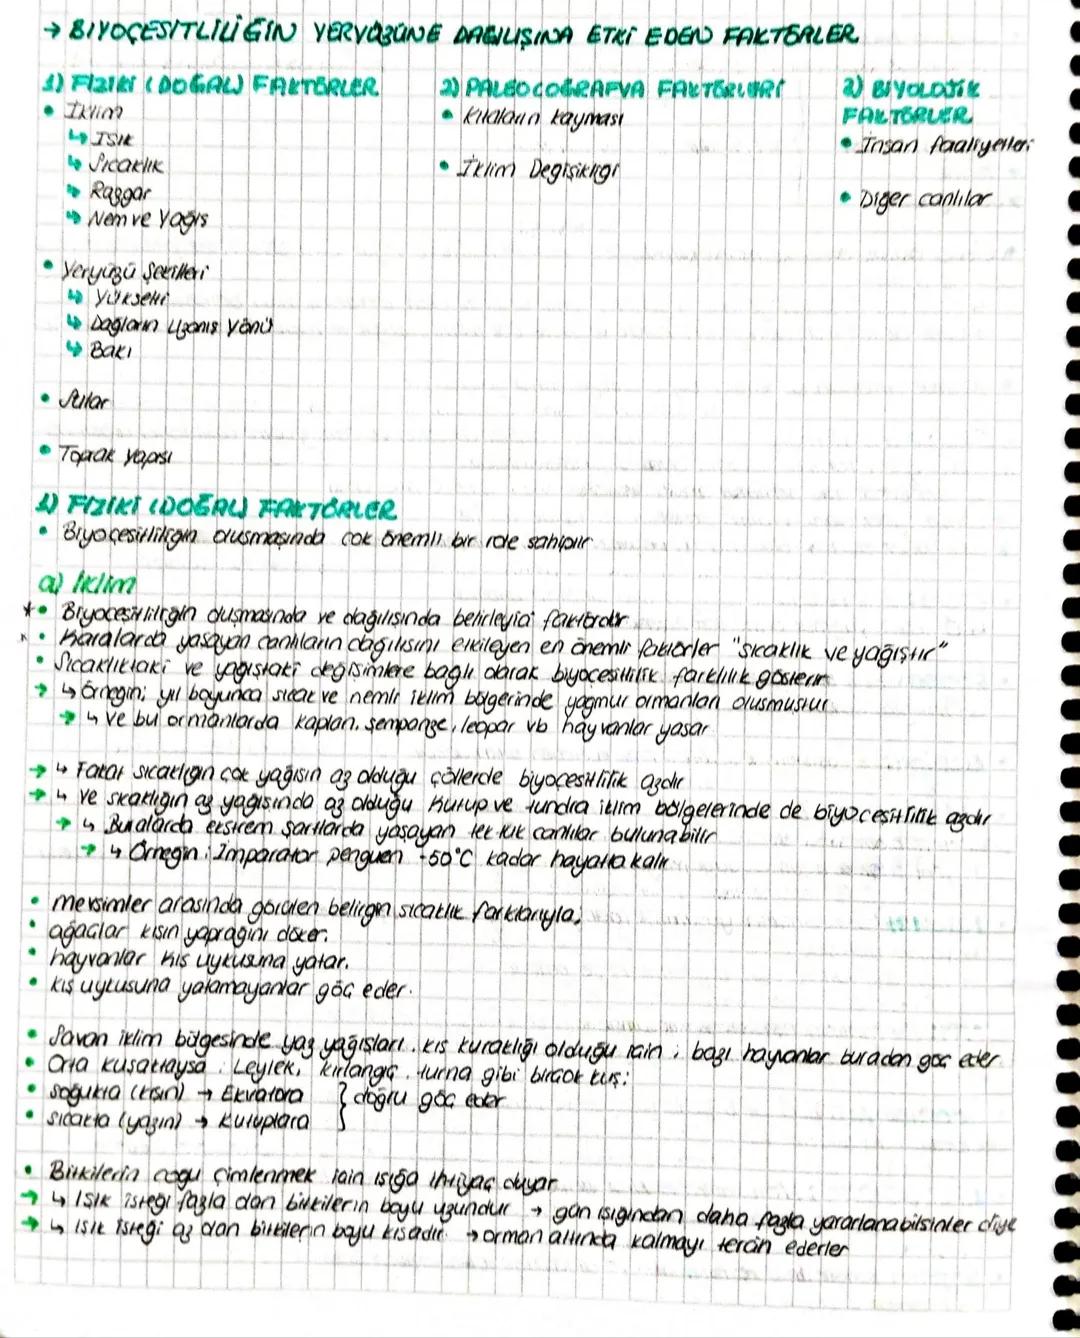 → BİYOÇEŞİTLİLİĞİN YERYÜZÜNE DAĞILIŞINA ETKİ EDEN FAKTÖRLER
1) FİZİKİ (DOĞAL) FAKTÖRLER
• İklim
↳ Işık
↳ Sıcaklık
↳ Rüzgar
↳ Nem ve Yağış
• Yeryüzü Şekilleri
↳ Yükselti
↳ Dağların Uzanış Yönü
↳ Bakı
• Sular
• Toprak yapısı
2) PALEOCOĞRAFYA FAKTÖRLERİ
• Kıtaların kayması
• İklim Değişikliği
2) BİYOLOJİK
FAKTÖRLER
• İnsan faaliyetleri
• Diğer canlılar
1) FİZİKİ (DOĞAL) FAKTÖRLER
• Biyoçeşitliliğin oluşmasında çok önemli bir role sahiptir
a) İklim
* • Biyoçeşitliliğin oluşmasında ve dağılışında belirleyici faktördür
• Karalarda yaşayan canlıların dağılışını etkileyen en önemli faktörler "sıcaklık ve yağıştır"
• Sıcaklıktaki ve yağıştaki değişimlere bağlı olarak biyoçeşitlilik farklılık gösterir
→ ↳ Örneğin; yıl boyunca sıcak ve nemli iklim bölgerinde yağmur ormanları oluşmuştur
→ ↳ ve bu ormanlarda kaplan, şempanze, leopar vb hayvanlar yaşar
→ ↳ Fakat sıcaklığın çok yağışın az olduğu çöllerde biyoçeşitlilik azdır
→ ↳ ve sıcaklığın az yağışında az olduğu kutup ve tundra iklim bölgelerinde de biyoçeşitlilik azdır
→ ↳ Buralarda ekstrem şartlarda yaşayan tek tük canlılar bulunabilir
→ ↳ Örneğin: İmparator penguen -50°C kadar hayatta kalır
• mevsimler arasında görülen belirgin sıcaklık farklarıyla;
• ağaçlar kışın yaprağını döker.
• hayvanlar kış uykusuna yatar.
• kış uykusuna yatamayanlar göç eder.
• Savan iklim bölgesinde yaz yağışları, kış kuraklığı olduğu için; bazı hayvanlar buradan göç eder
• Orta kuşaktaysa; Leylek, kırlangıç, turna gibi birçok kuş:
• soğukta (kışın) → Ekvatora } doğru göç eder
• sıcakta (yazın) → kutuplara
• Bitkilerin çoğu çimlenmek için ışığa ihtiyaç duyar
→ ↳ Işık isteği fazla olan bitkilerin boyu uzundur → gün ışığından daha fazla yararlanabilsinler diye
→ ↳ Işık isteği az olan bitkilerin boyu kısadır. → orman altında kalmayı tercih ederler